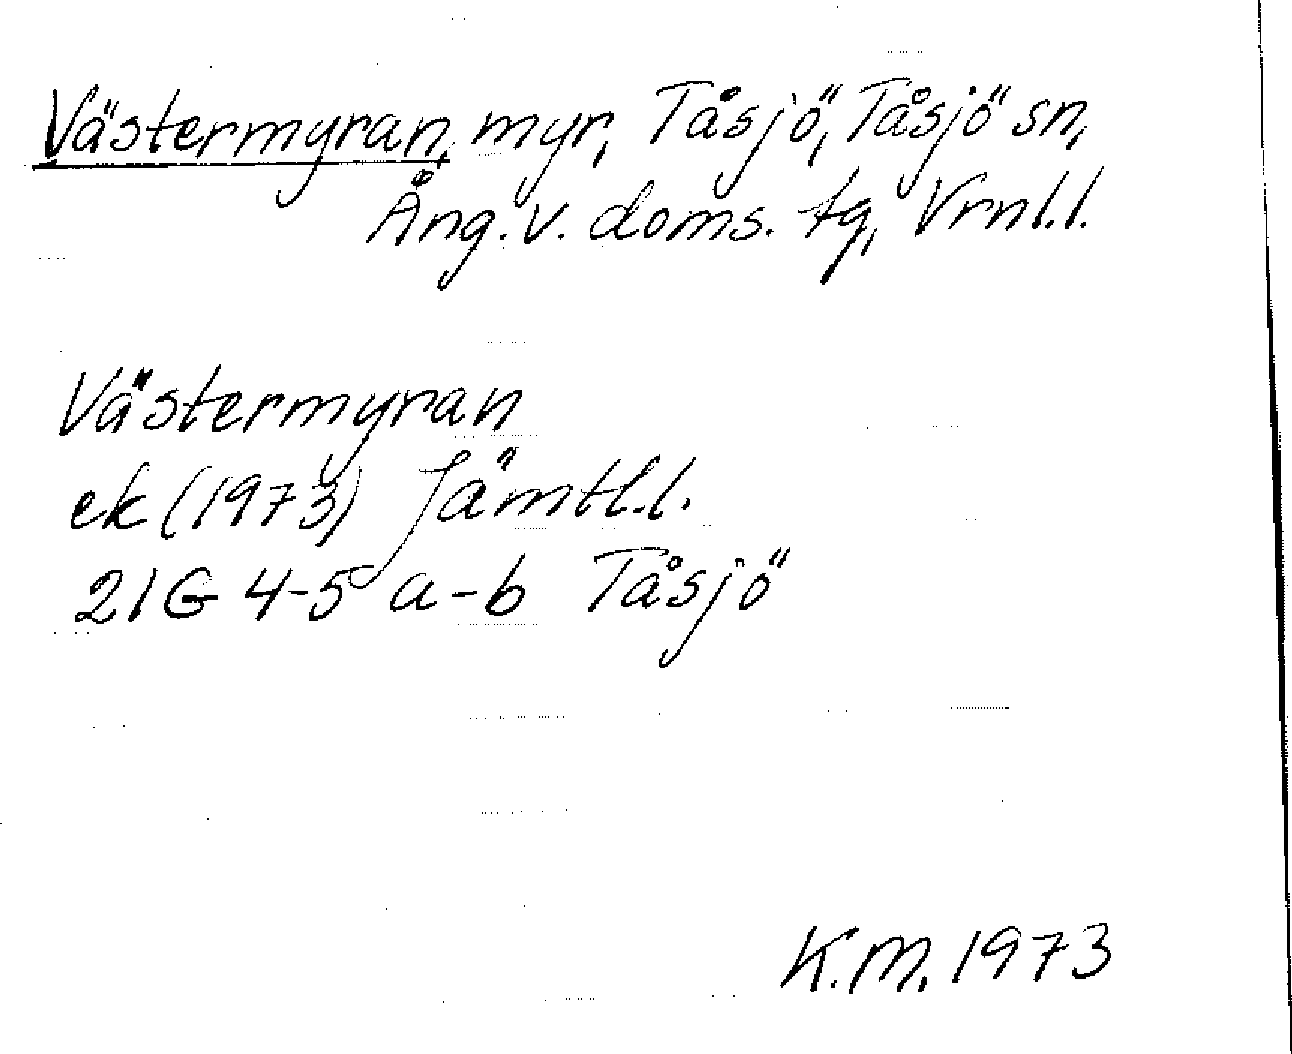 Västermyran, myr, Tåsjö, Tåsjö sn,
Ång. v. doms. tg, Vrnl.l.
Västermyran
ek (1973) Jämtl.l.
21G 4-5 a-b Tåsjö
K.M. 1973